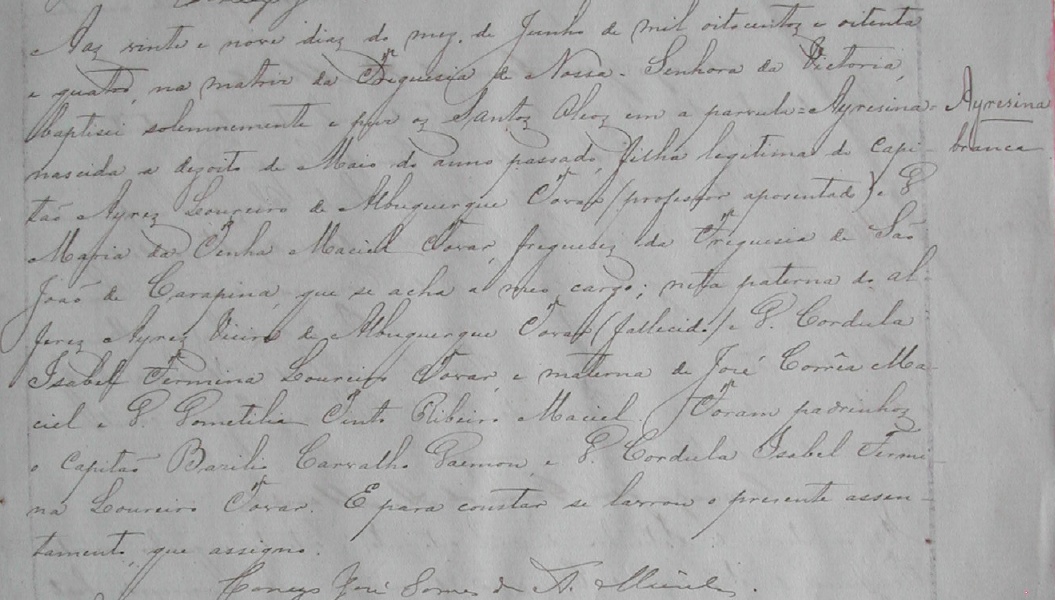 Aos vinte e nove dias do mez de Junho de mil oitocentos e oitenta
e quatro, na matriz da Freguesia de Nossa Senhora da Victoria,
baptisei solemnemente e puz os Santos Oleos em a parvula = Ayresina =
Ayresina
branca
nascida a dezoito de Maio do anno passado, filha legitima do Capi-
tão Ayrez Loureiro de Albuquerque Tovar (professor aposentado) e D.
Maria da Penha Maciel Tovar, freguezes da Freguesia de São
João de Carapina, que se acha a meo cargo; neta paterna do al-
ferez Ayrez Vieira de Albuquerque Tovar (fallecido) e D. Cordula
Isabel Firmina Loureiro Tovar, e materna de José Corrêa Ma-
ciel e D. Pinto Ribeiro Maciel. Foram padrinhos
o capitão Bazilio Carvalho Daemon, e D. Cordula Isabel Firmi-
na Loureiro Tovar. E para constar se lavrou o presente assen-
tamento, que assigno.
Conego José Gomes de A.